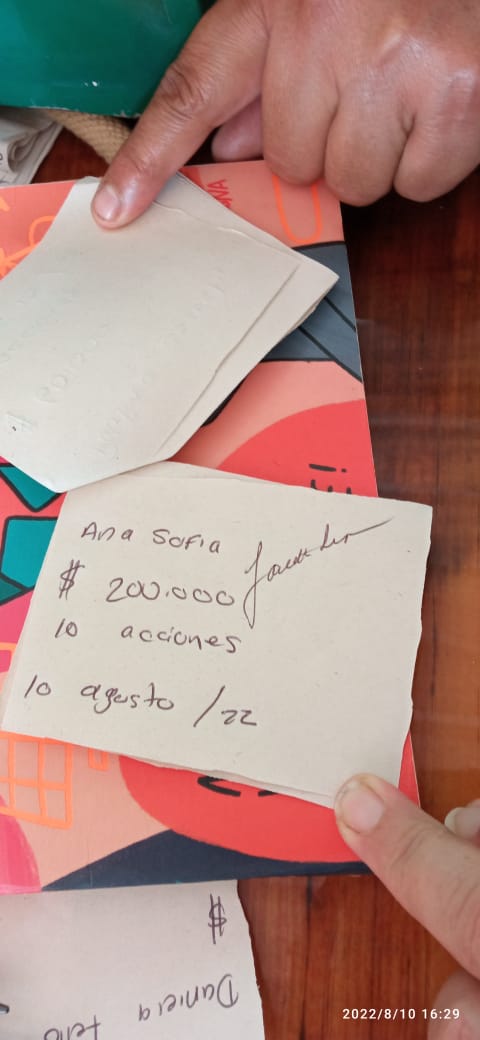 Ana Sofia
$ 200.000
10 acciones
10 agosto /22
$
Daniela
2022/8/10 16:29